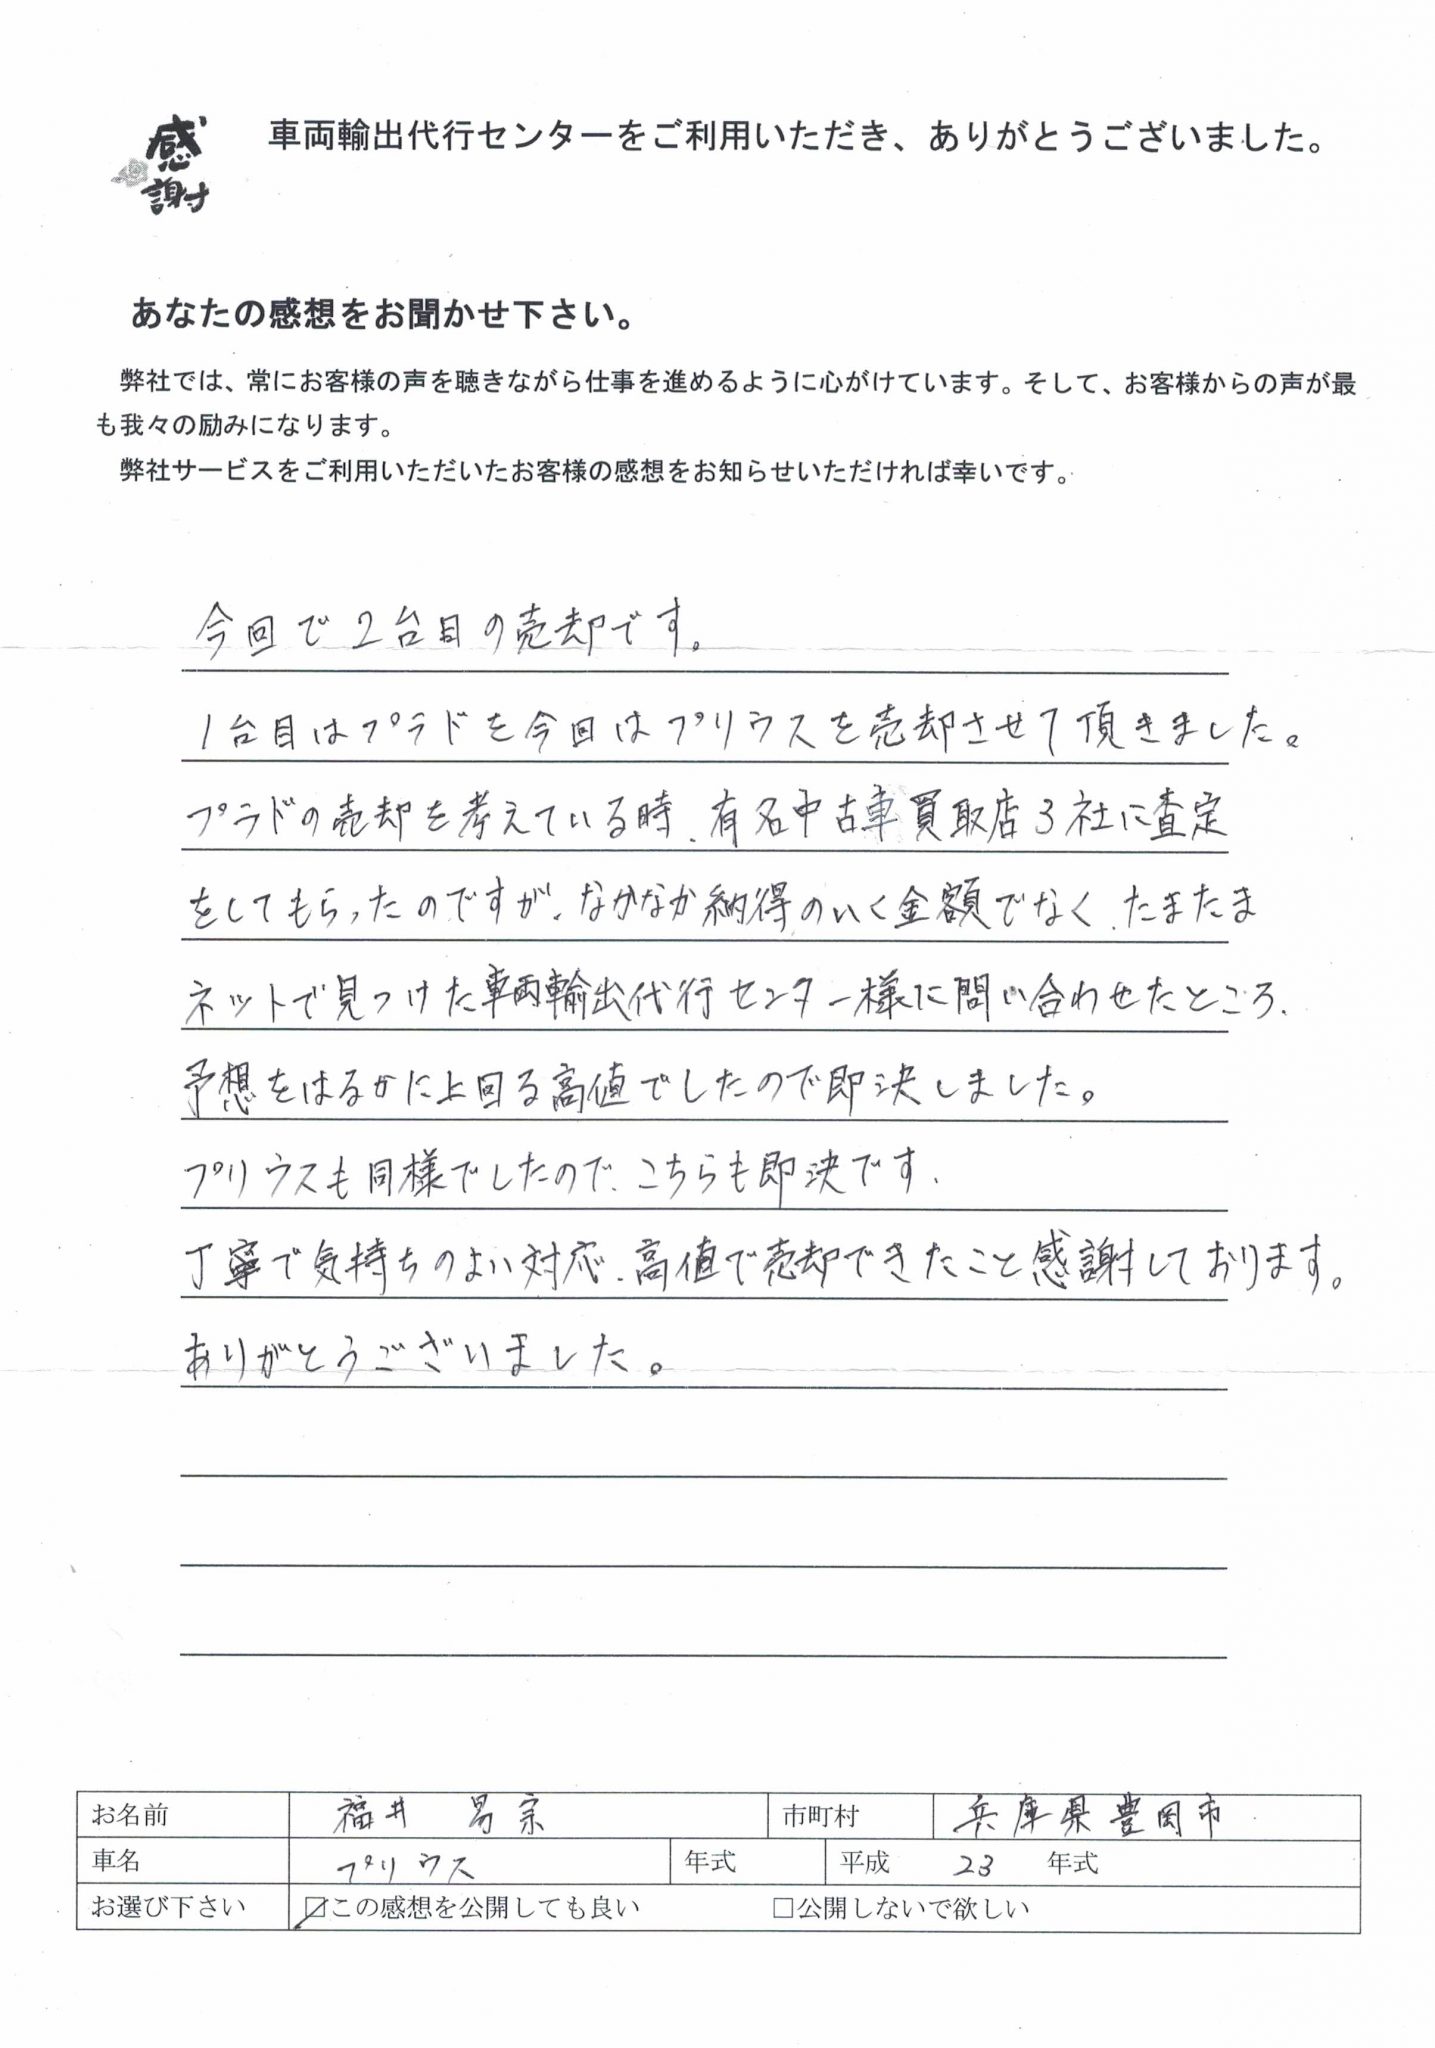 感謝
車両輸出代行センターをご利用いただき、ありがとうございました。
あなたの感想をお聞かせ下さい。
弊社では、常にお客様の声を聴きながら仕事を進めるように心がけています。そして、お客様からの声が最
も我々の励みになります。
弊社サービスをご利用いただいたお客様の感想をお知らせいただければ幸いです。
今回で2台目の売却です。
1台目はプラドを今回はプリウスを売却させて頂きました。
プラドの売却を考えている時、有名中古車買取店3社に査定
をしてもらったのですが、なかなか納得のいく金額でなく、たまたま
ネットで見つけた車両輸出代行センター様に問い合わせたところ、
予想をはるかに上回る高値でしたので即決しました。
プリウスも同様でしたので、こちらも即決です。
丁寧で気持ちのよい対応、高値で売却できたこと感謝しております。
ありがとうございました。
お名前 福井 易宗 市町村 兵庫県豊岡市
車名 プリウス 年式 平成 23 年式
お選び下さい ☑この感想を公開しても良い □公開しないで欲しい